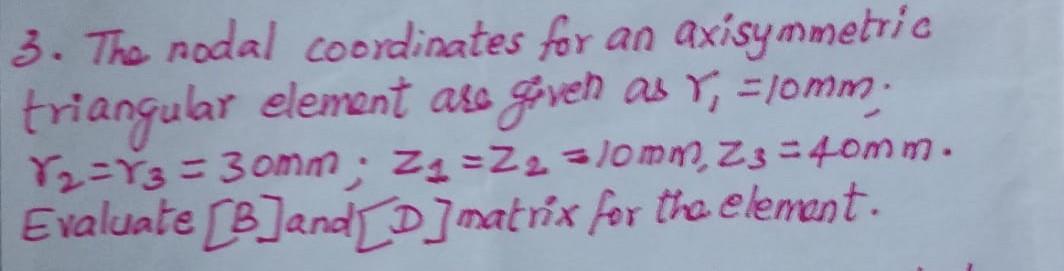 3. The nodal coordinates for an axisymmetric
triangular element are given as r₁ =10mm;
r₂=r₃ = 30mm; z₁ =z₂ =10mm, z₃ =40mm.
Evaluate [B]and[D]matrix for the element.